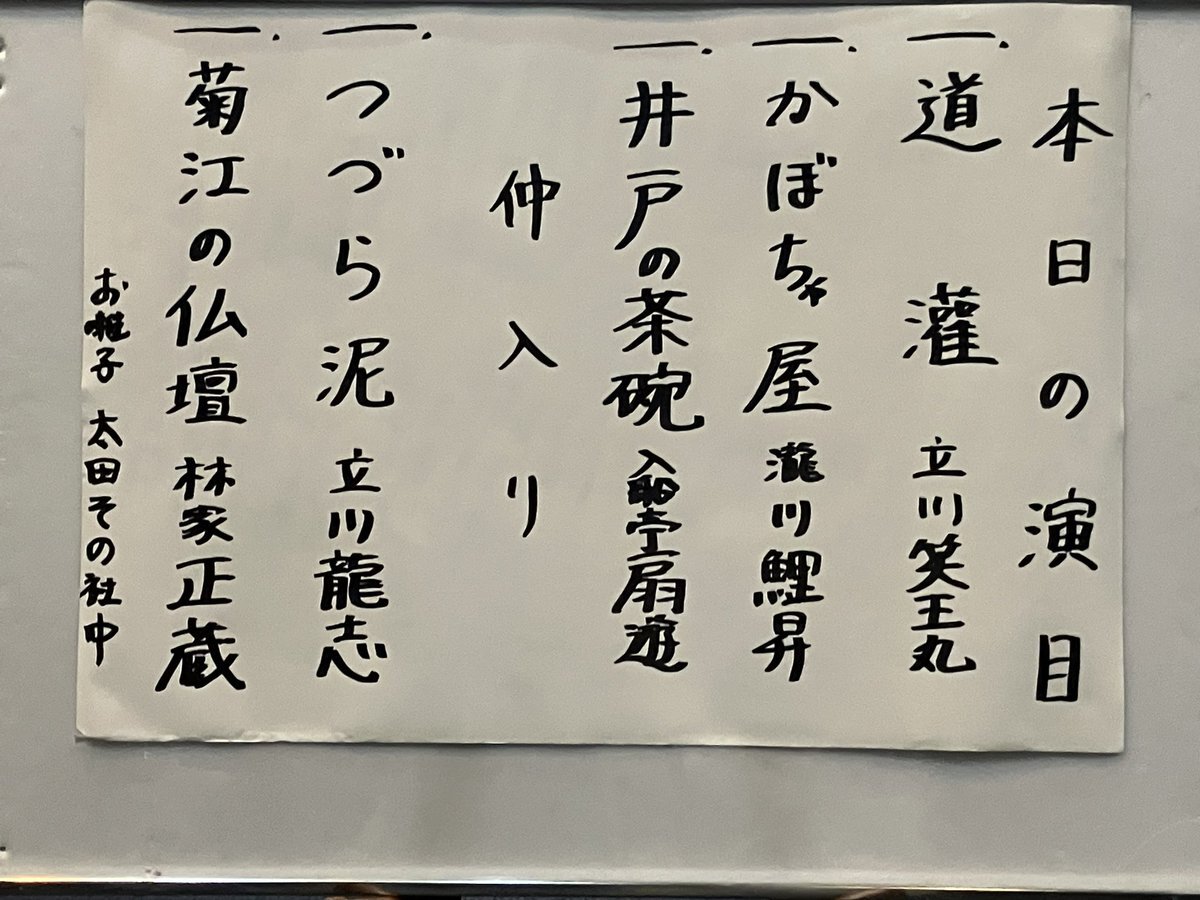 本日の演目
一.道灌 立川笑王丸
一.かぼちゃ屋 瀧川鯉昇
一.井戸の茶碗 入船亭扇遊
仲入り
一.つづら泥 立川龍志
一.菊江の仏壇 林家正蔵
お囃子 太田その社中